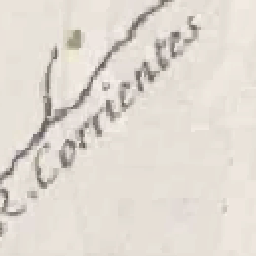 R. Corrientes